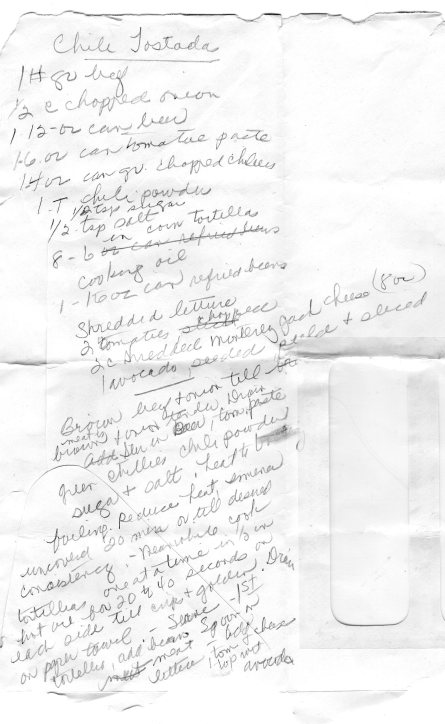 Chili Tostada
1 # gr beef
1/2 c chopped onion
1-12-oz can beer
1-6 oz can tomatoe paste
1 4 oz can gr. chopped chilies
1 T chili powder
1/2 tsp sugar
1/2 tsp salt
8 - 6 in corn tortillas
oz can refried beans
cooking oil
1 - 16 oz can refried beans
Shredded lettuce
2 tomatoes chopped
2 c shredded Monterey jack cheese (8 oz)
1 avocado, seeded, peeld + sliced
Brown beef + onion till
meat brown + onion tender. Drain
Add Stir in Beer, tom. paste
green chillies chili powder
sugar + salt, heat to
boiling. Reduce heat, simmer
uncovered 20 mins or till desired
consistency. - Meanwhile cook
tortillas one at a time in 1/2 in
hot oil for 20 to 40 seconds on
each side till crisp + golden. Drain
on paper towel. - Serve - 1st
tortilles, add beans spoon on
meat add
lettuce tom cheese
top wit avocado